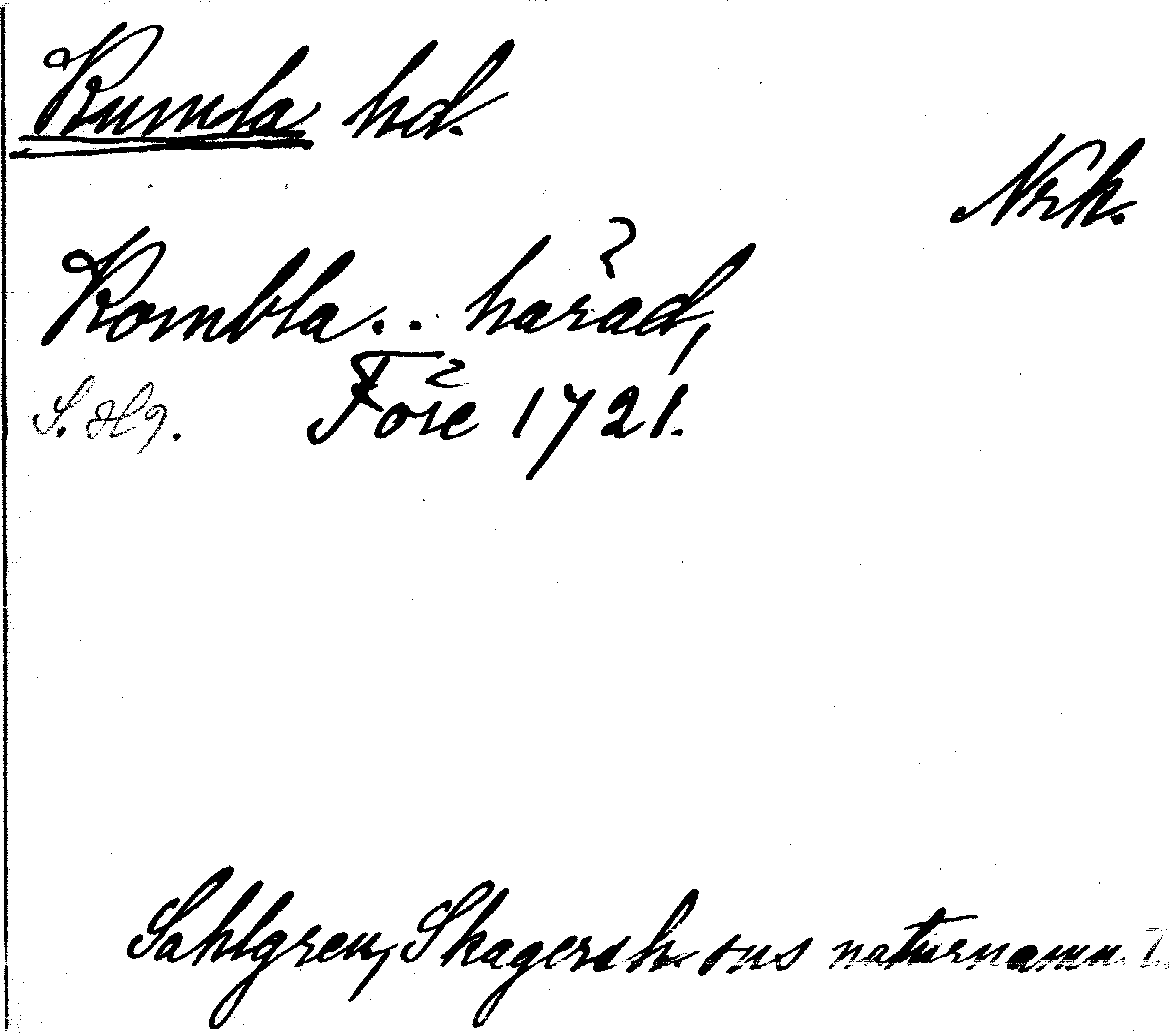 Kumla hd.
Nrk.
Kombla.. häräd,
S. Hg. Före 1721.
Sahlgren, Skagershults naturnamn I.